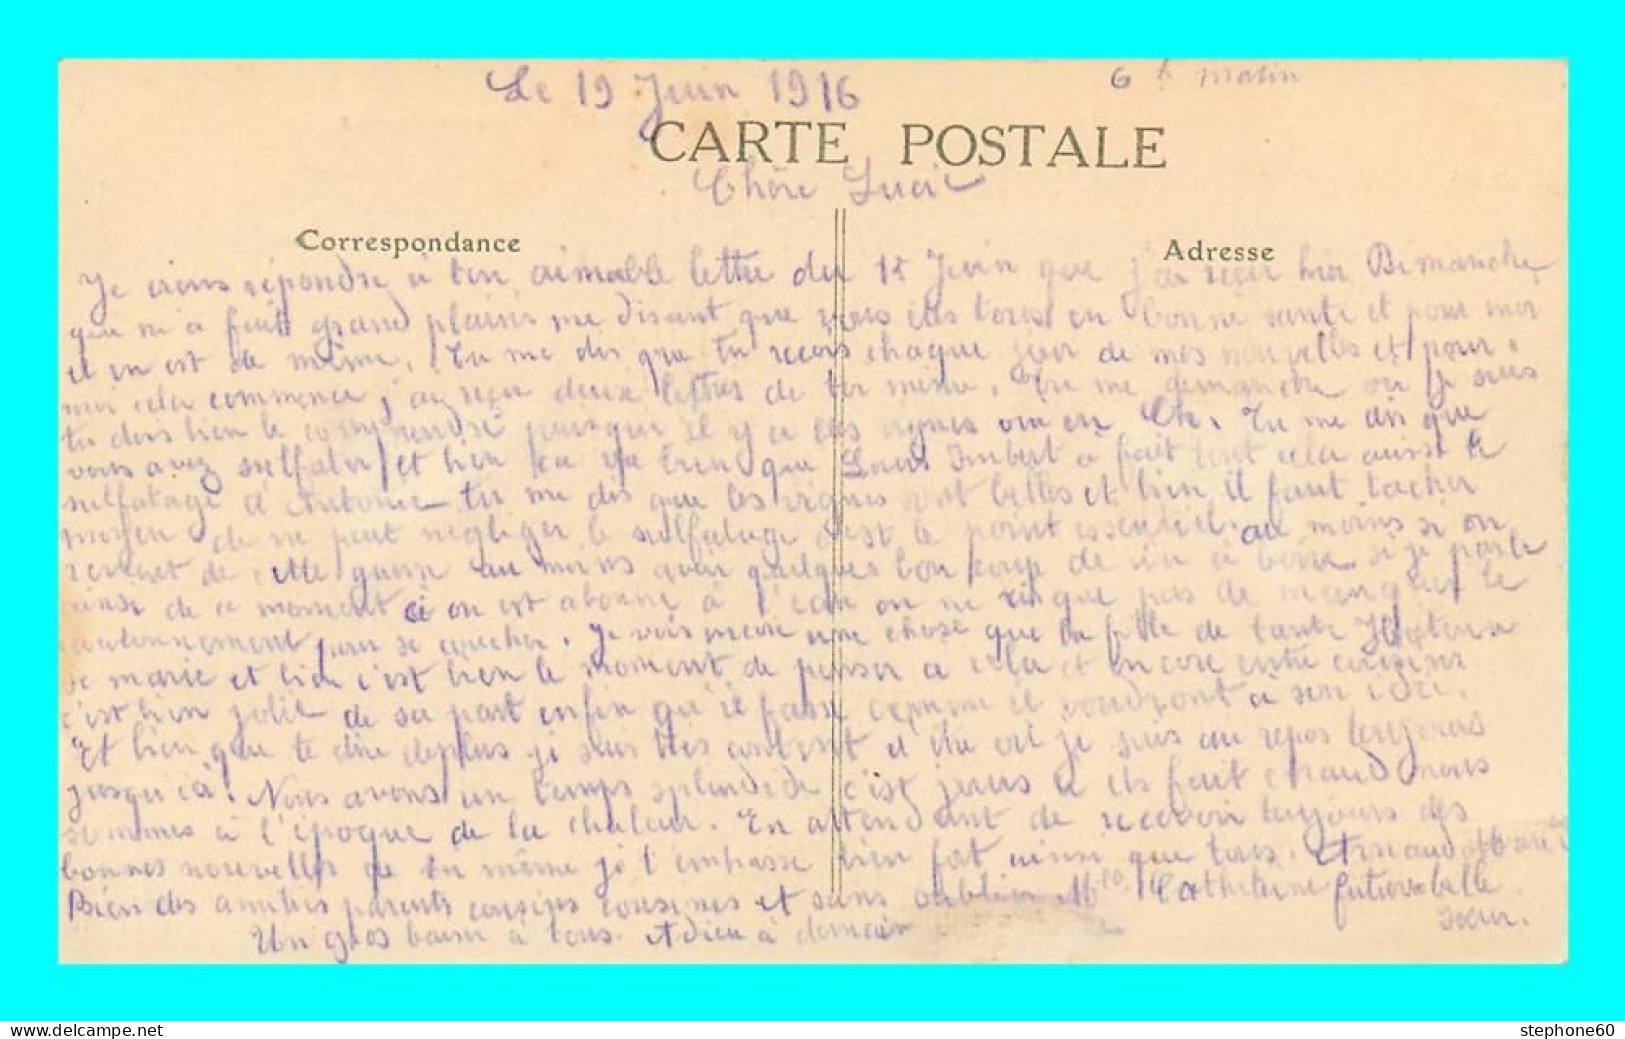 Le 19 Juin 1916
6 h matin
CARTE POSTALE
Chère Luci
Correspondance
Adresse
Je viens répondre à ton aimable lettre du 15 Juin que j'ai reçu hier Dimanche
que m'a fait grand plaisir me disant que vous etes tous en bonne santé et pour moi
il en est de même. Tu me dis que tu recois chaque jour de mes nouvelles et pour
moi cela commence, j'ai reçu deux lettres de toi même. Tu me demande si je suis
tu dois bien le comprendre puisque il y a des vignes Tu me dis que
vous avez sulfater et bien bien que Louis Imbert a fait tout cela aussi le
sulfatage d'Antonie tu me dis que les vignes sont belles et bien il faut tacher
moyen de ne peut negliger le sulfatage c'est le point essentiel. au moins si on
revenet de cette guerre au moins avoir quelques bon coup de vin a boire si je parle
ainsi de ce moment ci on est abonné à l'eau on ne risque pas de manquer le
pour se coucher. Je vois encore une chose que la fille de tante
se marie et bien c'est bien le moment de penser a cela et encore entre cousins
c'est bien jolie de sa part enfin qu'il fasse comme il voudront a son idée.
Et bien que te dire deplus je suis tres content d' ou je suis au repos toujours
jusqu'ici. Nous avons un temps splendide c'est jours ci il fait chaud nous
sommes à l'époque de la chaleur. En attendant de recevoir toujours des
bonnes nouvelles de tu même je t'embrasse bien fort ainsi que tous. Arnaud Marie
Bien des amitiés parents cousins cousines et sans oublier Mlle Catherine future belle
sœur.
Un gros baiser à tous. Adieu à demain
www.delcampe.net
stephone60